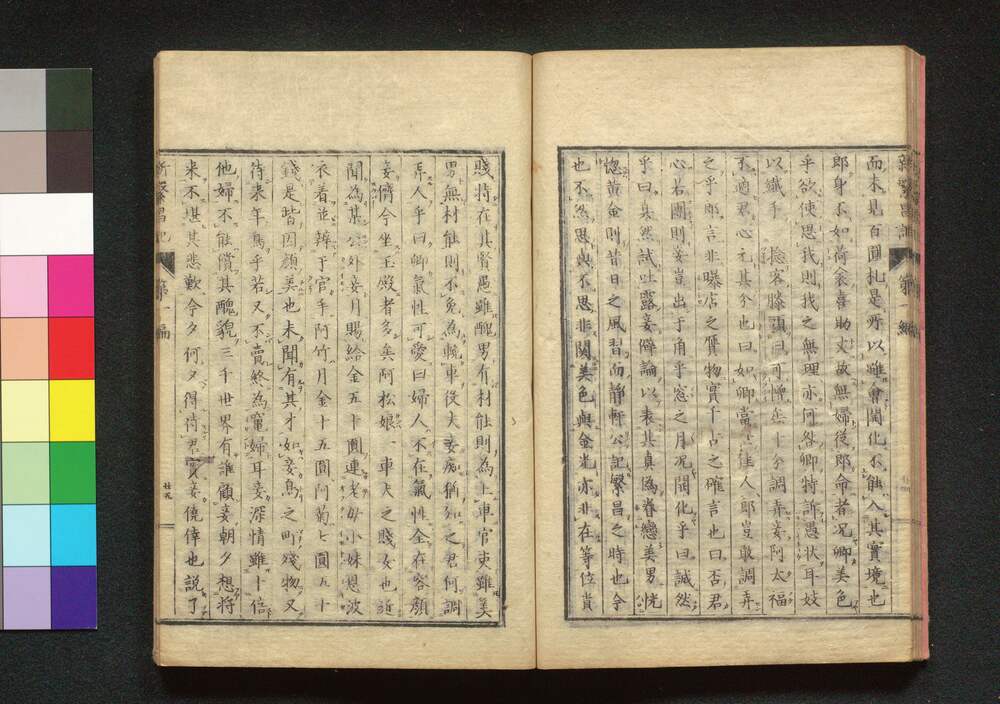 而未見百圓札是乃以雖會開化不能入其實境也
郎身不如荷衾喜助丈故無婦從郎命者況卿美色
乎欲使思我則我之無理亦何咎卿特訴愚状耳妓
以纖手 捻客膝頭曰可憎矣十分調弄妾阿太福
不適君心元其分也曰如卿當 佳人郎豈敢調弄
之乎郎言非曝店之贋物實千古之確言也曰否君
心右團則妾豈出于角乎窓之月况開化乎曰誠然
乎曰果然試吐露妾僻論以表其真為眷戀美男恍
惚黄金則昔日之風習而静軒公記繁昌之時也今
也不然思與不思非関美色與金光亦非在等位貴
賤持在其賢愚雖醜男有材能則為上車官吏雖美
男無材能則不免為輓車役夫妾痴猶知之君何調
弄人乎曰卿氣性可愛曰婦人不在氣性全在容顔
妾儕今坐玉殿者多矣阿松娘一車夫之賤女也近
聞為某公外妾月賜給金五十圓連老母小妹恩波
衣着並辨于官手阿竹月金十五圓阿菊七圓五十
錢是皆因顔美也未聞有其才如妾鳥之町殘物又
待来年鳥乎若又不賣終為竈婦耳妾深情雖十倍
他婦不能償其醜貌三千世界有誰顧妾朝夕想将
来不堪其悲歎今夕何夕得侍君 妾僥倖也説了
新繁昌記 第一編